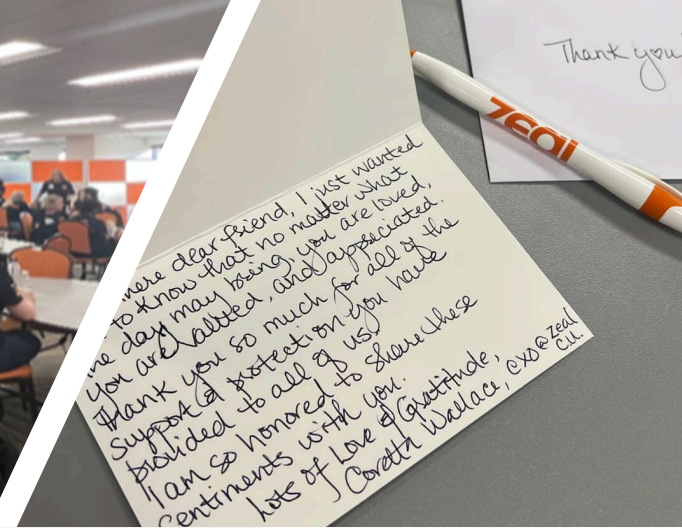 here dear friend, I just wanted
to know that no matter what
he day may bring, you are loved,
you are valued, and appreciated.
Thank you so much for all of the
support & protection you have
provided to all of us!
I am so honored to share these
sentiments with you.
Lots of Love & Gratitude,
Coretta Wallace, CXO @ Zeal
C.U.
zeal
Thank you